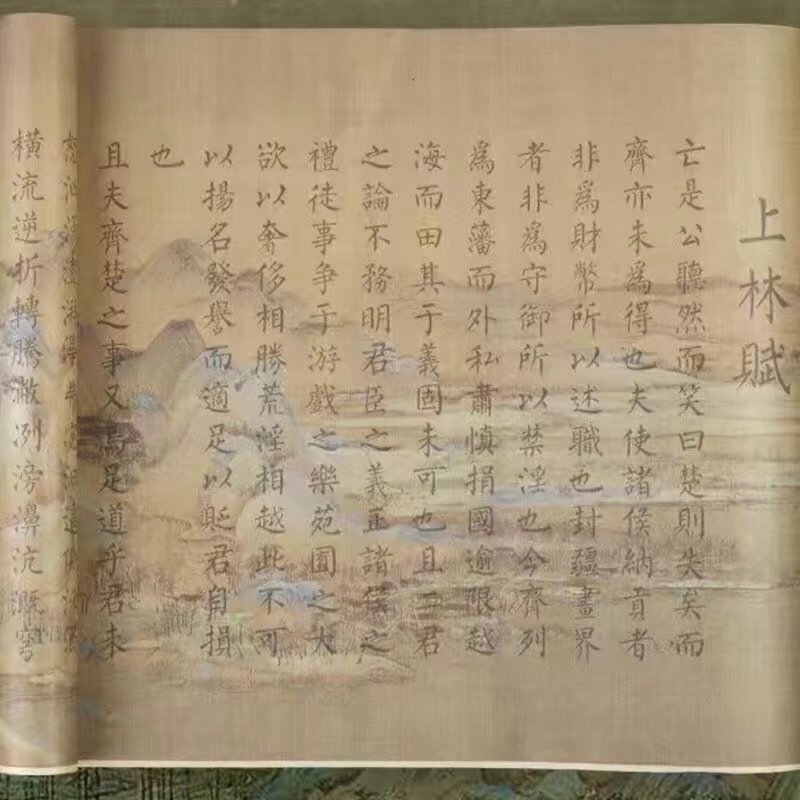 上林賦
亡是公聽然而笑曰楚則失矣而
齊亦未為得也夫使諸侯納貢者
非為財幣所以述職也封疆畫界
者非為守御所以禁淫也今齊列
為東藩而外私肅慎捐國逾限越
海而田其于義固未可也且二君
之論不務明君臣之義正諸侯之
禮徒事爭于游戲之樂苑囿之大
欲以奢侈相勝荒淫相越此不可
以揚名發譽而適足以貶君自損
也
且夫齊楚之事又烏足道乎君未
橫流逆折轉騰潎洌滂濞沆溉穹